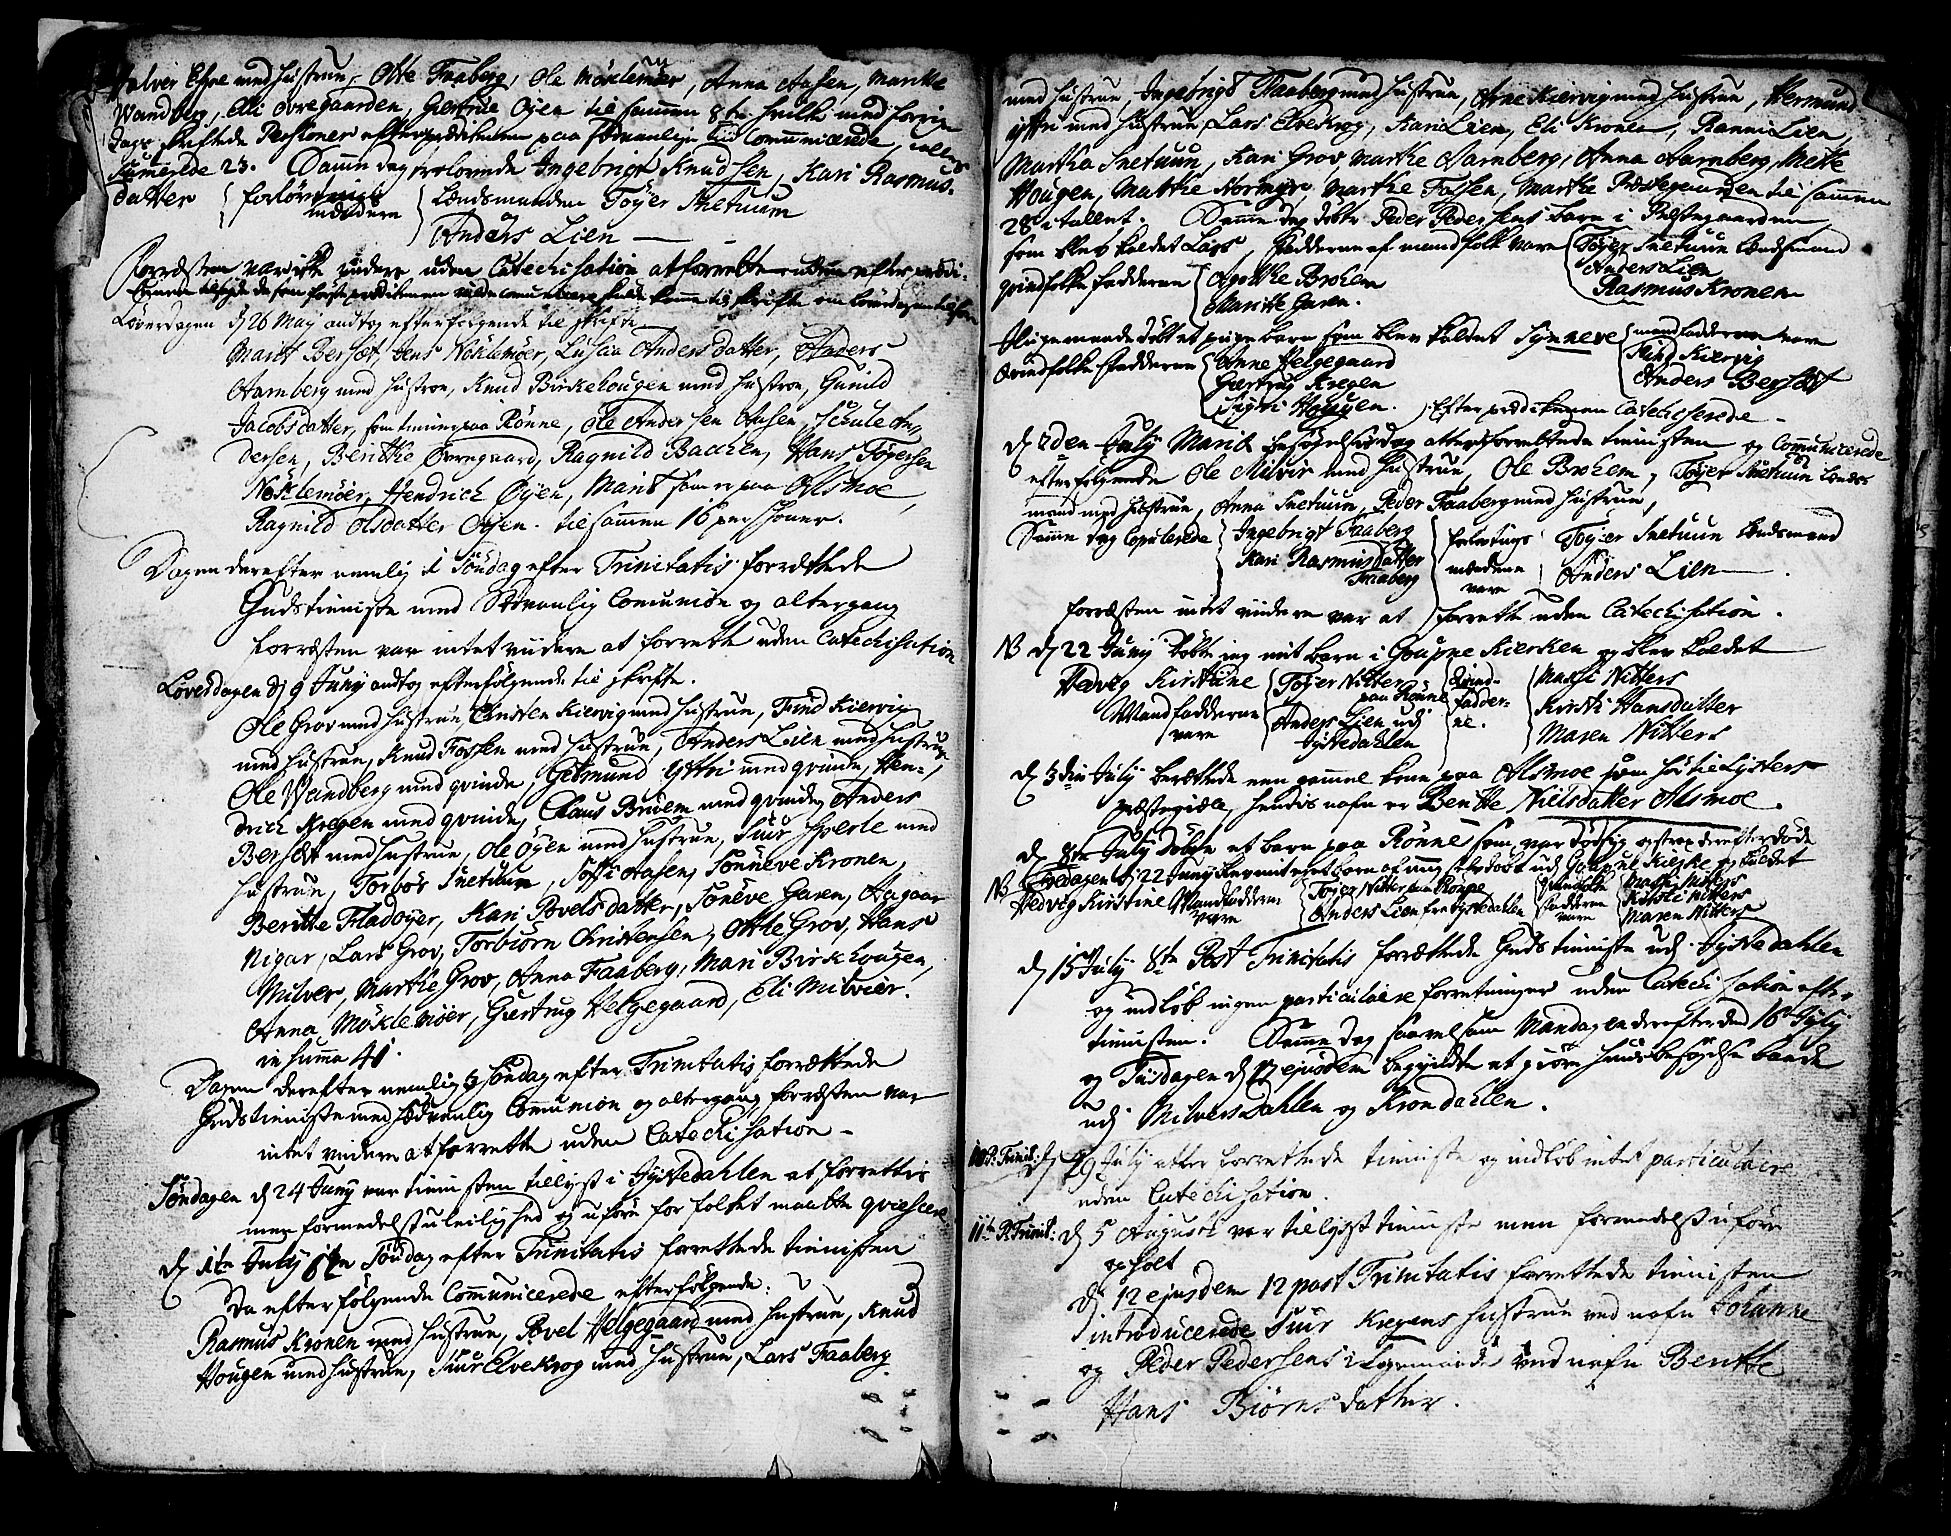 Halver Espe med hustrue, Otte Faaberg, Ole Möklemöer, Anna Aasen, Marthe
Wandberg, Eli Ovregaarden, Gertrue Öyen til sammen 8te hvilke med forrige
dags skriftede Persioner efter prædichenen paa sædvanlig viis Communicerede,
Sumerede 23. Samme dag trolovede Ingebrigt Knudssen, Kari Rasmus-
datter forlövnings mændene Lændsmanden Töyer Snetuun
og Anders Lien
forræsten var ikke videre uden Catechisation at forrette
Löverdagen d 26 May andtog efterfölgende til skrifte
Marit Bersæt, Jens Möklemöer, Lussia Andersdatter, Anders
Aarnberg med hustroe, Knud Birkehougen med hustroe, Gunild
Jacobsdatter, som tiener paa Rönne, Ole Andersen Aasen, Schule An-
dersen, Berithe Övregaard, Ragnild Bachen, Hans Töyersen
Möklemöer, Hendrich Öyen, Marit som er paa Alsmoe,
Ragnild Olsdatter Öyen. til sammen 16 personer.
Dagen derefter nemlig 1 Söndag efter Trinitatis forrættede
Gudstieniste med Sædvanlig Comunion og altergang
forræsten var intet viidere at forrette uden Catechisation
Löverdagen d 9 Juny andtog efterfölgende til skrifte.
Ole Grov med hustrue, Christen Kiervig med hustrue, Find Kiervig
med hustrue, Knud Fossen med hustrue, Anders Lien med hustrue
Ole Wandberg med qvinde, Germund Yttri med qvinde, Hen-
drich Kregen med qvinde, Claus Bruem med qvinde, Anders
Bersæt med hustrue, Ole Öyen med hustrue, Siur Sperle med
hustrue, Torbör Snetuun, Soffi Aasen, Sönneve Kronen,
Berithe Fladöyer, Kari Povelsdatter, Sönneve Garen, Aagaar
Nigar, Lars Grov, Torbiörn Christensen, Otthe Grov, Hans
Milver, Marthe Grov, Anna Faaberg, Mari Birkhougen,
Anna Möklemöer, Giertrug Helgegaard, Eli Milvier.
in summa 41.
Dagen derefter nemlig 3 söndag efter Trinitatis forrættede
Gudstieniste med Sædvanlig Communion og altergang forræsten var
intet videre at forrette uden Catechisation
Söndagen d 24 Juny var tienisten tillyst i Jystedahlen at forrettis
men formedelst uleilighed og uföre for folket maatte qviescere
d 1te July 6te Söndag efter Trinitatis forrettede tienisten
da efterfölgende Communicerede efterfölgende:
Rasmus Kronen med hustrue, Povel Helgegaard med hustrue, Knud
Hougen med hustrue, Siur Elvekrog med hustrue, Lars Faaberg
med hustrue, Ingebrigt Faaberg med hustrue, Arne Kiervig med hustrue, Hermund
Yttri med hustrue, Lars Elvekrog, Kari Lien, Eli Kronen, Ranni Lien,
Martha Snetuun, Kari Grov, Marthe Aarnberg, Anna Aarnberg, Mette
Hougen, Matthe Normyre, Marthe Fossen, Marthe Præstegaarden til sammen
28 i tallet. Samme dag döbte Peder Pedersens barn i Præstegaarden
som blev kaldet Lars, fadderne af mandfolk vare Töyer Snetuun Lændsmand
Anders Lien
Rasmus Kronen
qvindfolke fadderne Agotthe Brohem
Maritte Garen.
döbt et pige barn som blev kaldet Synneve mandfadderne vare
Find Kiervig
Anders Bersæt
qvindfolke fadderne Anne Helgegaard
Giertrug Kregen
Sigri Hougen. Efter prædikenen Catechiserede
d 2den July Mariæ besögelsesdag atter forrettede tienisten og Communicerede
efterfölgende Ole Milvir med hustrue, Ole Brohem, Töyer Snetuun Lænds
mand med hustrue, Anna Snetuun, Peder Faaberg med hustrue,
Samme dag Copulerede Ingebrigt Faaberg
Kari Rasmusdatter
Faaberg
forlovnings mændene vare Töyer Snetuun Lændsmand
Anders Lien
forræsten intet viidere var at forrette uden Catechisation.
NB d 22 Juny döbte jeg mit barn i Goupne Kiercken og blev kaldet
Hedvig Kirstine
Mandfadderne vare Töyer Nitters paa Rönne
Anders Lien udj Jystedahlen
Qvindfadderne. Massi Nitters
Kirsti Hansdatter
Maren Nitters
d 3die July berættede een gammel kone paa Alsmoe som hör til Lysters
præstegield, hendis nafn er Benthe Nielsdatter Alsmoe.
d 8te July döbte et barn paa Rönne som var dödsyg og strax derefter döde
NB Fredagen d 22 Juny blev mit eget barn af mig selv döbt udj Goupne Kierke og kaldet
Hedvig Kirstine Mandfadderne vare Töyer Nitter paa Rönne
Anders Lien fra Jystedahlen
qvindfolk fadderne vare Massi Nitters
Kirsti Nitters
Maren Nitters
d 15 July 8te Post Trinitatis forrættede Gudstieniste udj Jystedahlen
og indlöb ingen particulaire forretninger uden Catechisation efter
tienisten. Samme dag saavelsom Mandagen derefter den 16 July
og Tiisdagen d 17 ejusdem begyndte at giöre huusbesögelse baade
udj Milversdahlen og Krondahlen.
10 P: Trinit: d 29 July atter forrettede tieniste og indlöb intet particulaire
uden Catechisation.
11te P. Trinit: d 5 Augusti var tillyst tieniste men formedelst uföre
opholt
d 12 ejusdem 12 post Trinitatis forrettede tienisten
introducerede Siur Kregens hustrue ved nafn Johanne
og Peder Pedersens ved nafn Benthe
Hans Biörnsdatter.